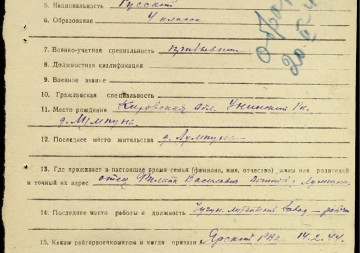 5. Национальность Русский
6. Образование 4 класса
7. Военно-учетная специальность
8. Должностная квалификация
9. Военное звание
10. Гражданская специальность
11. Место рождения Кировская обл. Унинский р-н.
д. Лумпунь
12. Последнее место жительства д. Лумпунь
13. Где проживает в настоящее время семья (фамилия, имя, отчество) жены или родителей
и точный их адрес отец Васильевич
14. Последнее место работы и должность завод
15. Каким райгорвоенкоматом и когда призван Ярский РВК 14.2.44